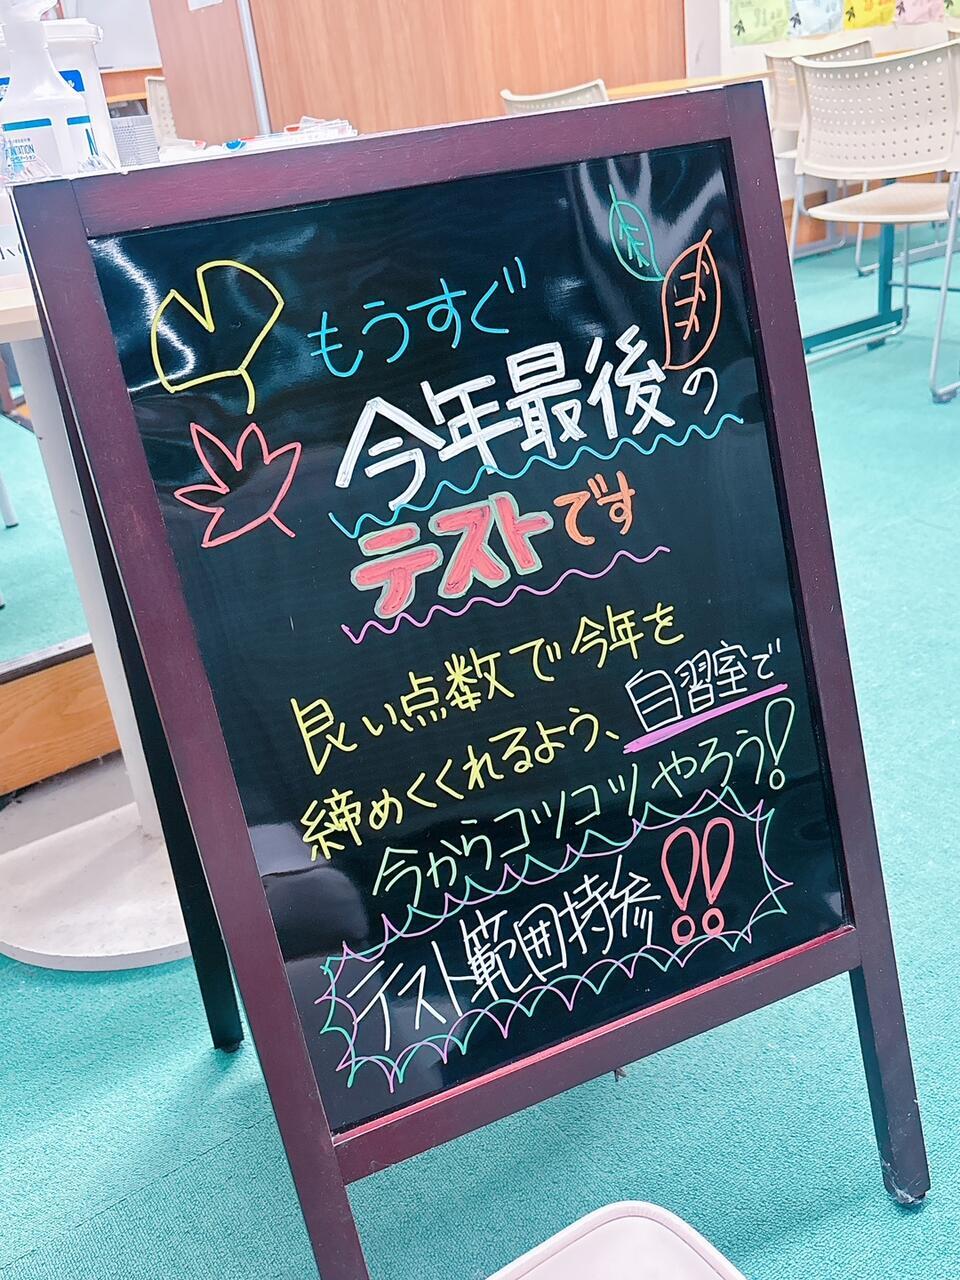 もうすぐ
今年最後の
テストです
良い点数で今年を
締めくくれるよう、自習室で
今からコツコツやろう!
テスト範囲持参!!